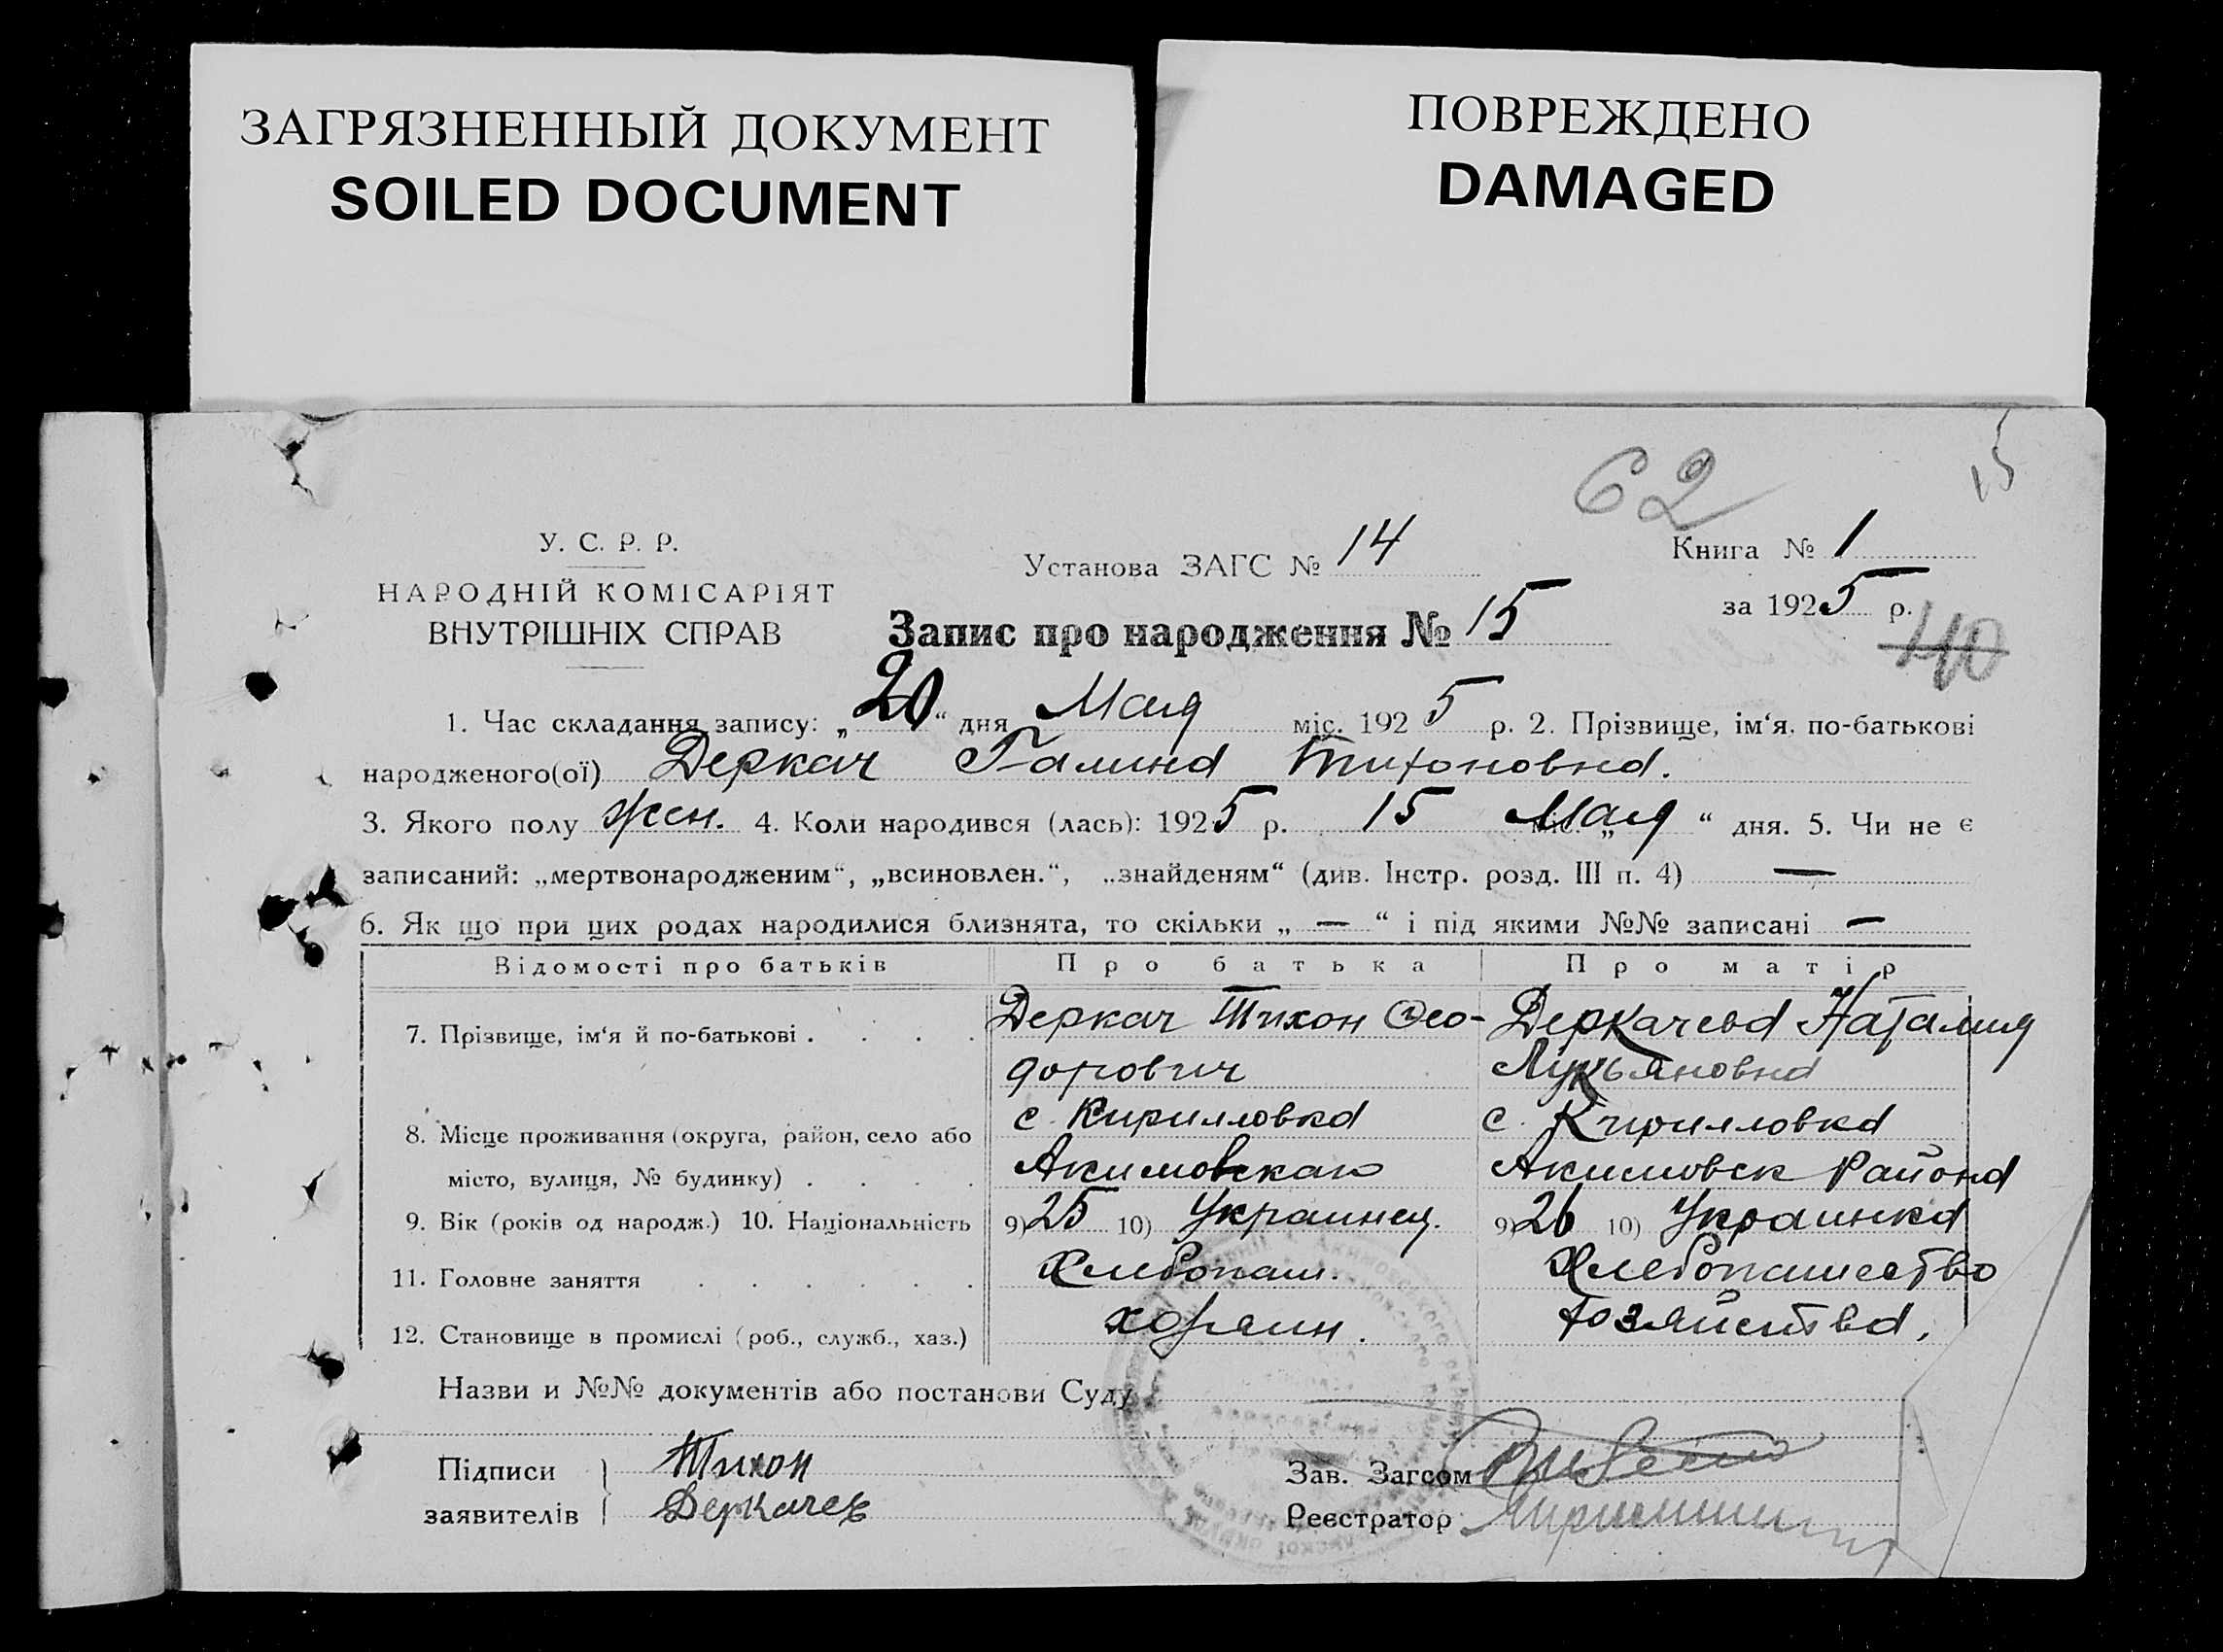 ЗАГРЯЗНЕННЫЙ ДОКУМЕНТ
SOILED DOCUMENT
ПОВРЕЖДЕНО
DAMAGED
62
15
У. С. Р. Р.
НАРОДНІЙ КОМІСАРІЯТ
ВНУТРІШНІХ СПРАВ
Установа ЗАГС № 14
Книга № 1
за 1925 р.
40
Запис про народження № 15
1. Час складання запису: „20“ дня Мая міс. 1925 р. 2. Прізвище, ім‘я, по-батькові
народженого(ої) Деркач Галина Тихоновна.
3. Якого полу жен. 4. Коли народився (лась): 1925 р. 15 Мая міс. „ “ дня. 5. Чи не є
записаний: „мертвонародженим“, „всиновлен.“, „знайденям“ (див. Інстр. розд. III п. 4) —
6. Як що при цих родах народилися близнята, то скільки „ — “ і під якими №№ записані —
Відомості про батьків Про батька Про матір
7. Прізвище, ім‘я й по-батькові . . . . Деркач Тихон Фео- Деркачева Наталия
дорович Лукьяновна
8. Місце проживання (округа, район, село або с. Кирилловка с. Кирилловка
місто, вулиця, № будинку) . . . . Акимовск Района
9. Вік (років од народж.) 10. Національність 9) 25 10) Украинец. 9) 26 10) Украинка
11. Головне заняття . . . . . . Хлебопаш. Хлебопашество
12. Становище в промислі (роб., служб., хаз.) хозяин. хозяйства.
Назви и №№ документів або постанови Суду
Підписи Тихон
заявителів Деркачев
Зав. Загсом
Реєстратор